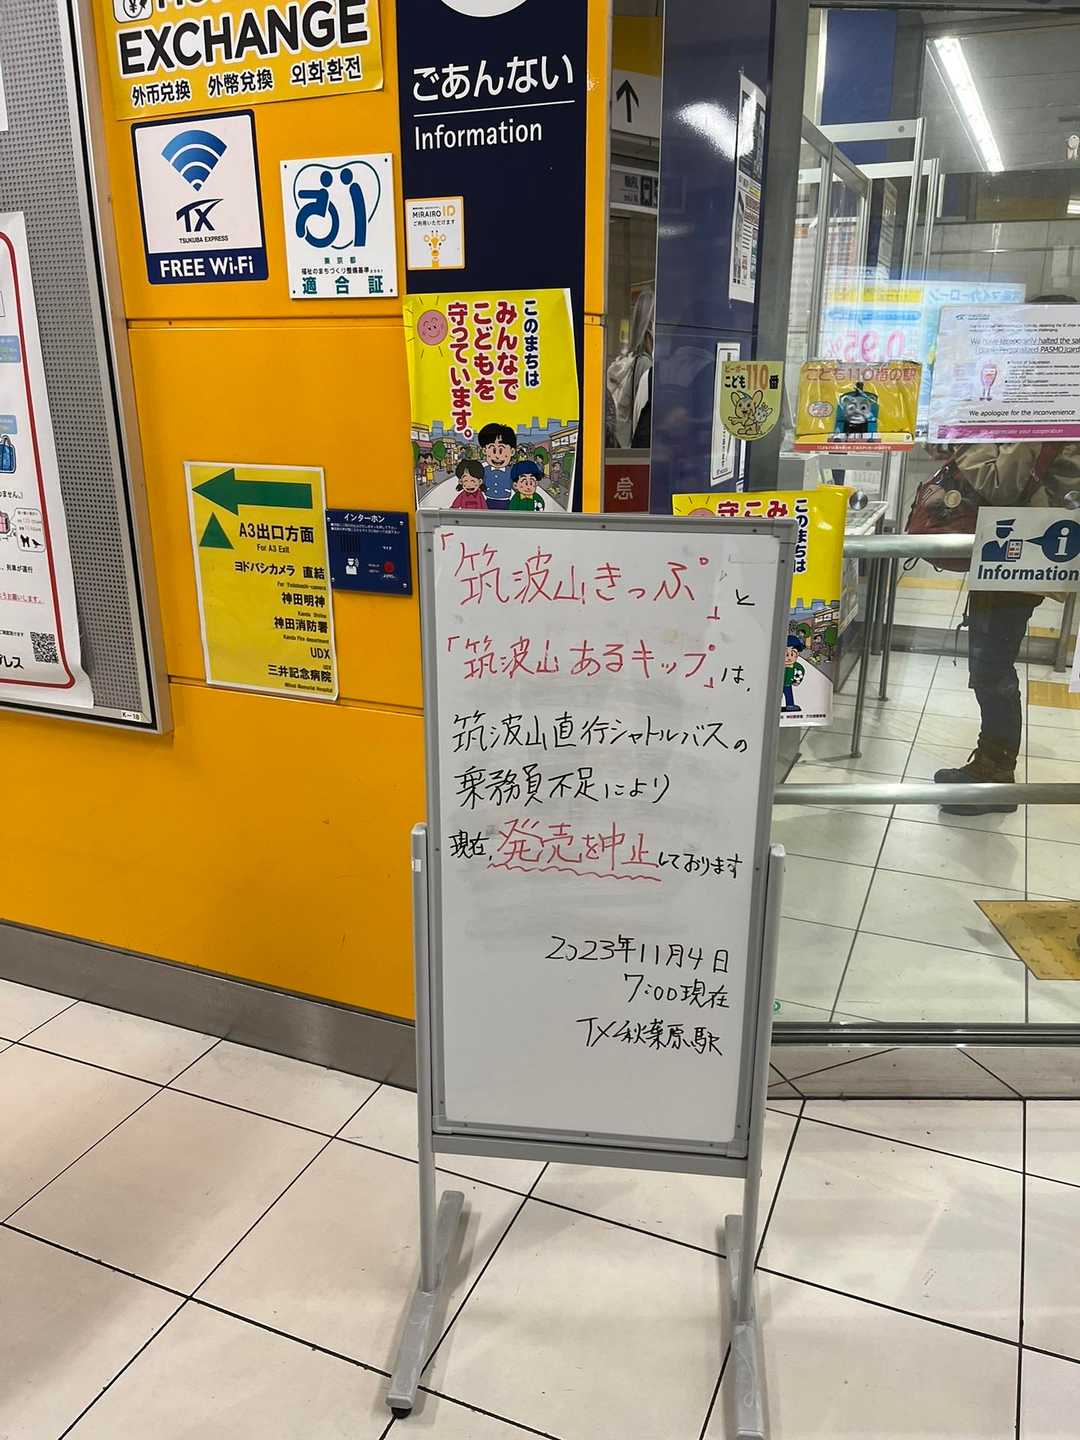 EXCHANGE
外币兑换 外幣兌換 외화환전
TX
TSUKUBA EXPRESS
FREE Wi-Fi
東京都
適合証
ごあんない
Information
MIRAIRO ID
ご利用いただけます
このまちは
みんなで
こどもを
守っています。
A3出口方面
For A3 Exit
ヨドバシカメラ 直結
神田明神
神田消防署
Kanda Fire department
UDX
UDX
三井記念病院
Mitsui Memorial Hospital
インターホン
K-18
「筑波山きっぷ」と
「筑波山あるキップ」は、
筑波山直行シャトルバスの
乗務員不足により
現在、発売を中止しております
2023年11月4日
7:00現在
TX秋葉原駅
こども110番
こども110番の駅
0.95%
We have temporarily halted the sa
We apologize for the inconvenience
Information
急
このまちは